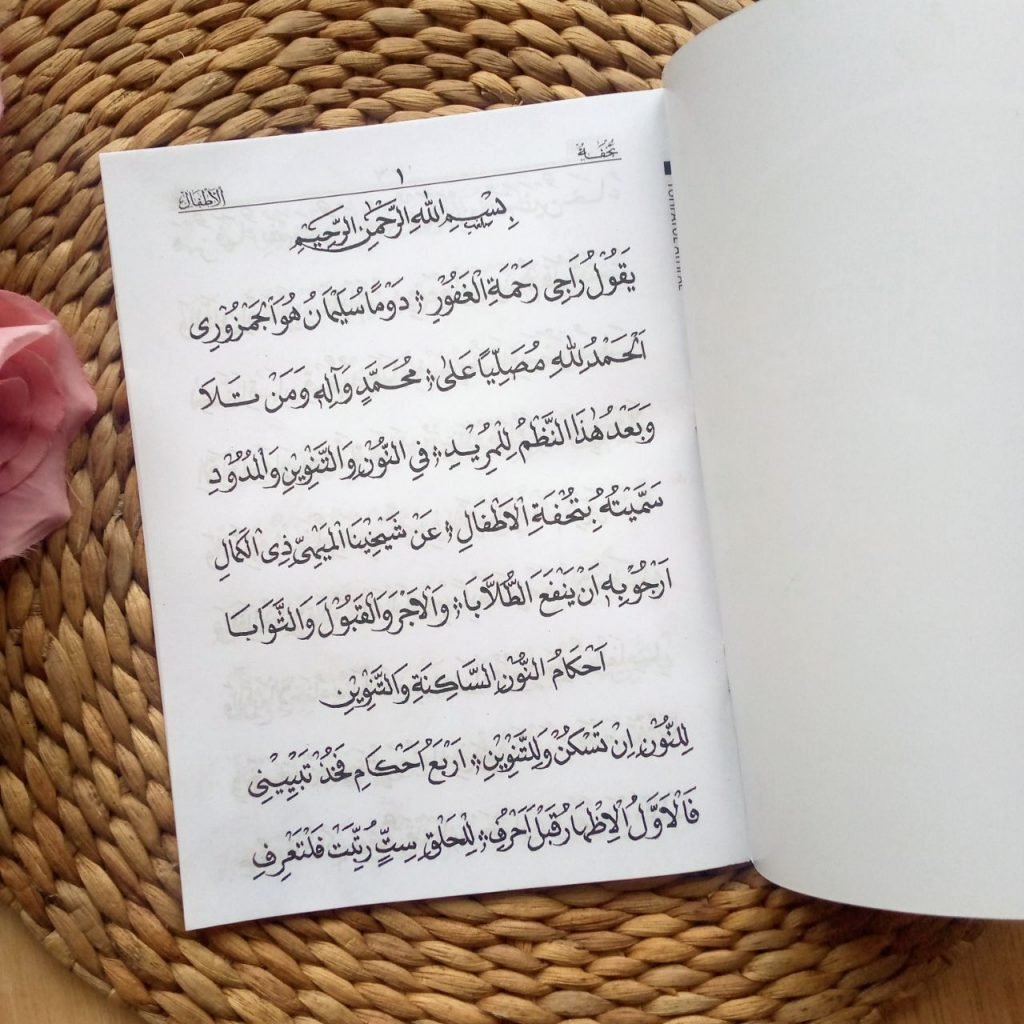 تحفة
١
الأطفال
بِسْمِ اللهِ الرَّحْمٰنِ الرَّحِيْمِ
يَقُوْلُ رَاجِى رَحْمَةِ الْغَفُوْرِ ؛ دَوْمًا سُلَيْمَانُ هُوَ الْجَمْزُوْرِى
اَلْحَمْدُ لِلّٰهِ مُصَلِّيًا عَلٰى ؛ مُحَمَّدٍ وَآلِهِ وَمَنْ تَلَا
وَبَعْدُ هٰذَا النَّظْمُ لِلْمُرِيْدِ ؛ فِي النُّوْنِ وَالتَّنْوِيْنِ وَالْمُدُوْدِ
سَمَّيْتُهُ بِتُحْفَةِ الْاَطْفَالِ ؛ عَنْ شَيْخِنَا الْمِيْهِيِّ ذِى الْكَمَالِ
اَرْجُوْ بِهِ اَنْ يَنْفَعَ الطُّلَّابَا ؛ وَالْاَجْرَ وَالْقَبُوْلَ وَالثَّوَابَا
اَحْكَامُ النُّوْنِ السَّاكِنَةِ وَالتَّنْوِيْنِ
لِلنُّوْنِ اِنْ تَسْكُنْ وَلِلتَّنْوِيْنِ ؛ اَرْبَعُ اَحْكَامٍ فَخُذْ تَبْيِيْنِى
فَالْاَوَّلُ الْاِظْهَارُ قَبْلَ اَحْرُفِ ؛ لِلْحَلْقِ سِتٍّ رُتِّبَتْ فَلْتَعْرِفِ